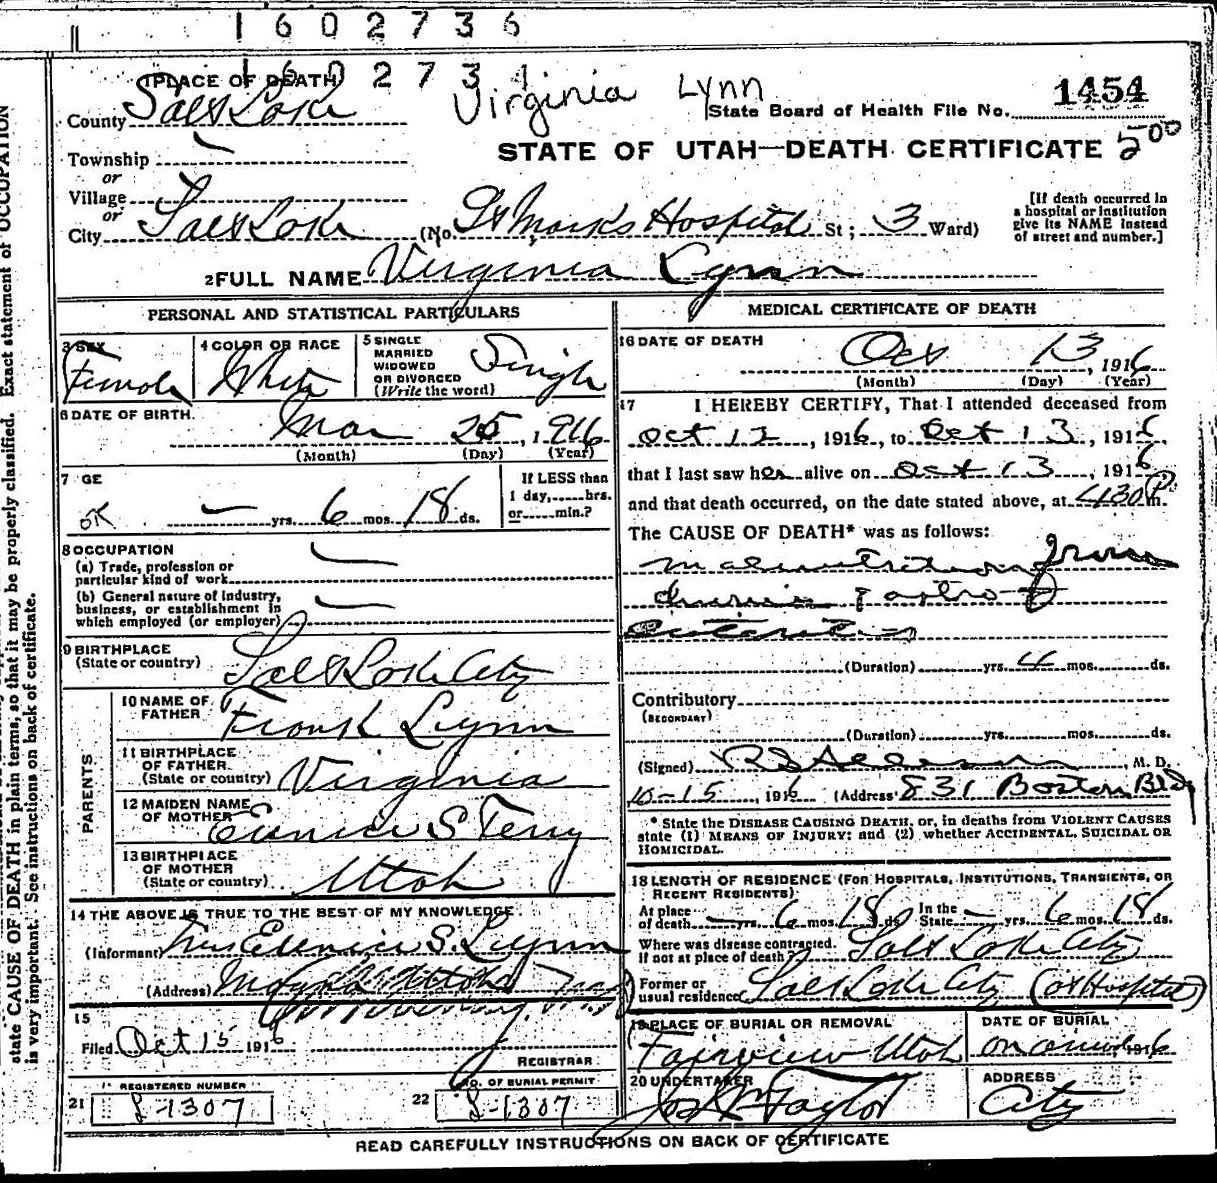 1602736
160273
(1PLACE OF DEATH)
Virginia Lynn
County Salt Lake
State Board of Health File No. 1454
STATE OF UTAH—DEATH CERTIFICATE 500
Township
or
Village
or
City Salt Lake (No. St Marks Hospital St; 3 Ward)
[If death occurred in
a hospital or institution
give its NAME instead
of street and number.]
2 FULL NAME Virginia Lynn
PERSONAL AND STATISTICAL PARTICULARS
3 SEX Female
4 COLOR OR RACE White
5 SINGLE
MARRIED
WIDOWED
OR DIVORCED
(Write the word) Single
6 DATE OF BIRTH. Mar 25, 1916
(Month) (Day) (Year)
7 GE
OK
yrs. 6 mos. 18 ds.
If LESS than
1 day, hrs.
or min.?
8 OCCUPATION
(a) Trade, profession or
particular kind of work
(b) General nature of Industry,
business, or establishment in
which employed (or employer)
9 BIRTHPLACE
(State or country) Salt Lake City
PARENTS
10 NAME OF
FATHER Frank Lynn
11 BIRTHPLACE
OF FATHER.
(State or country) Virginia
12 MAIDEN NAME
OF MOTHER Eunice S Terry
13 BIRTHPLACE
OF MOTHER
(State or country) Utah
14 THE ABOVE IS TRUE TO THE BEST OF MY KNOWLEDGE.
(Informant) Mrs Eunice S. Lynn
(Address)
15
Filed Oct 15 1916
REGISTRAR
REGISTERED NUMBER
21 L-1307
NO. OF BURIAL PERMIT
22 L-1307
MEDICAL CERTIFICATE OF DEATH
16 DATE OF DEATH
Oct 13, 1916
(Month) (Day) (Year)
17 I HEREBY CERTIFY, That I attended deceased from
Oct 12, 1916, to Oct 13, 1916
that I last saw her alive on Oct 13, 1916
and that death occurred, on the date stated above, at 430 P m.
The CAUSE OF DEATH* was as follows:
Malnutrition from
(Duration) yrs. mos. ds.
Contributory
(SECONDARY)
(Duration) yrs. mos. ds.
(Signed) M. D.
10-15, 1916 (Address) 831 Boston Bldg
* State the DISEASE CAUSING DEATH, or, in deaths from VIOLENT CAUSES
state (1) MEANS OF INJURY; and (2) whether ACCIDENTAL, SUICIDAL OR
HOMICIDAL.
18 LENGTH OF RESIDENCE (FOR HOSPITALS, INSTITUTIONS, TRANSIENTS, OR
RECENT RESIDENTS)
At place
of death yrs. 6 mos. 18 ds. In the
State yrs. 6 mos. 18 ds.
Where was disease contracted.
If not at place of death? Salt Lake City
Former or
usual residence Salt Lake City (at Hospital)
19 PLACE OF BURIAL OR REMOVAL
Fairview Utah
DATE OF BURIAL
1916
20 UNDERTAKER
Taylor
ADDRESS
City
READ CAREFULLY INSTRUCTIONS ON BACK OF CERTIFICATE
state CAUSE OF DEATH in plain terms, so that it may be properly classified. Exact statement of OCCUPATION
is very important. See instructions on back of certificate.